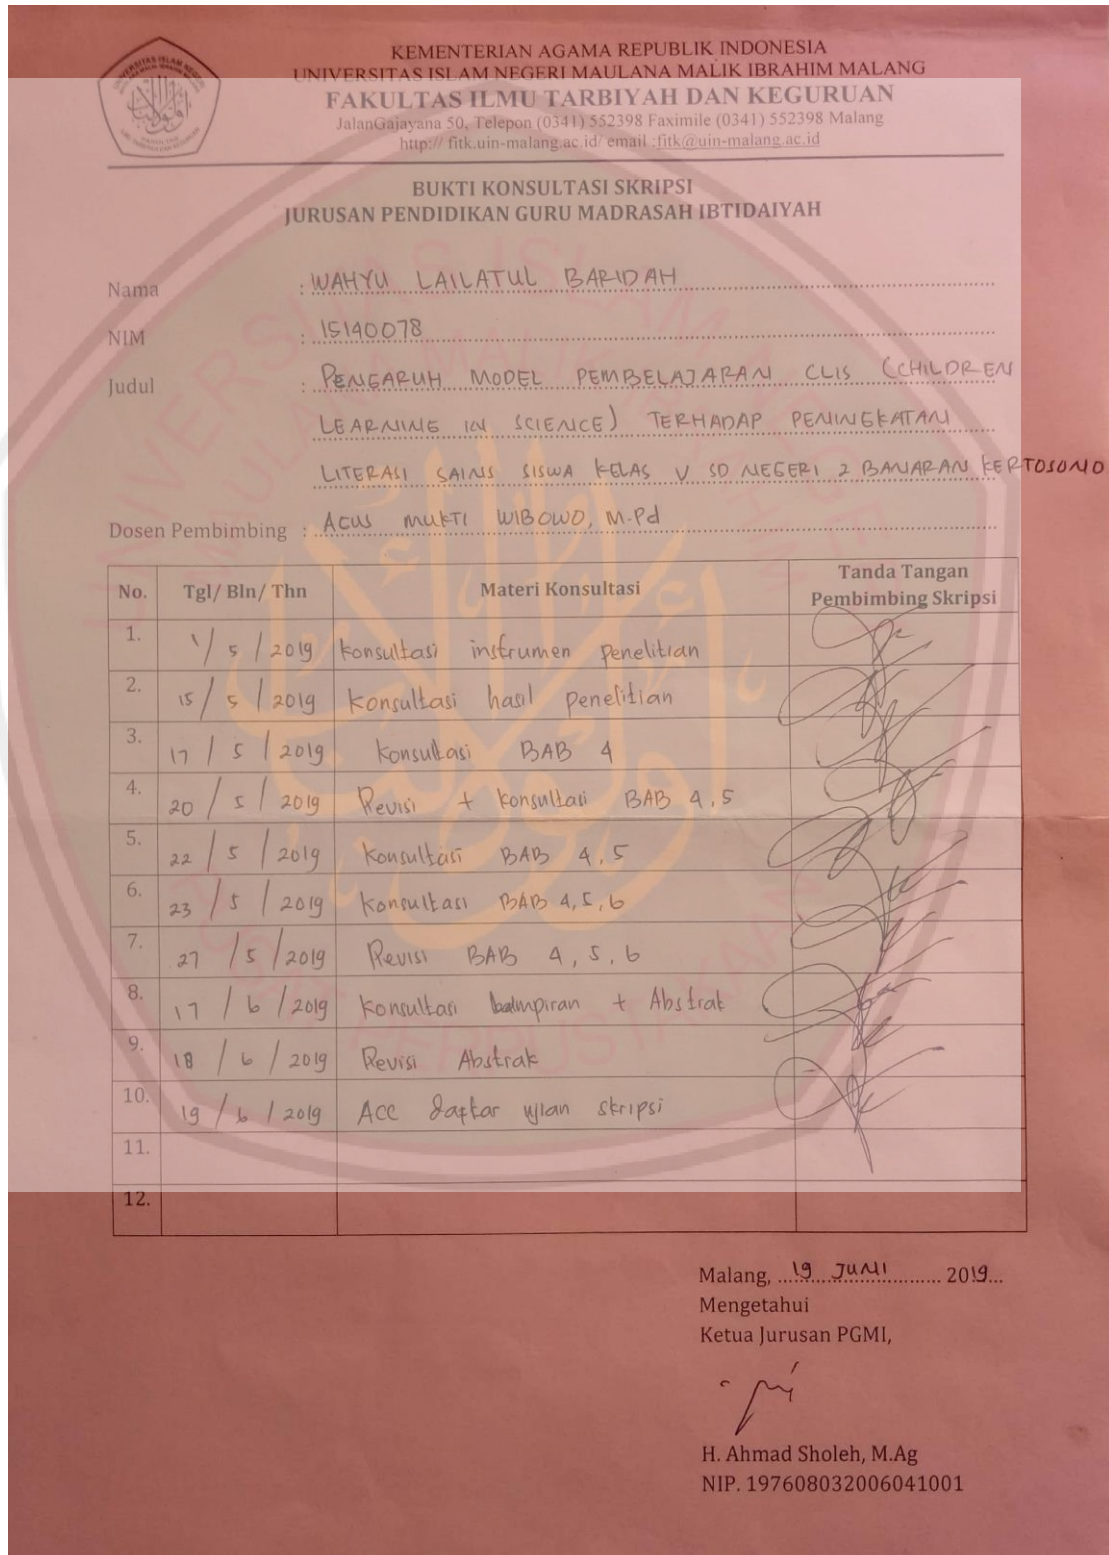 KEMENTERIAN AGAMA REPUBLIK INDONESIA
UNIVERSITAS ISLAM NEGERI MAULANA MALIK IBRAHIM MALANG
FAKULTAS ILMU TARBIYAH DAN KEGURUAN
JalanGajayana 50, Telepon (0341) 552398 Faximile (0341) 552398 Malang
http:// fitk.uin-malang.ac.id/ email :fitk@uin-malang.ac.id
BUKTI KONSULTASI SKRIPSI
JURUSAN PENDIDIKAN GURU MADRASAH IBTIDAIYAH
Nama : WAHYU LAILATUL BARIDAH
NIM : 15140078
Judul : PENGARUH MODEL PEMBELAJARAN CLIS (CHILDREN
LEARNING IN SCIENCE) TERHADAP PENINGKATAN
LITERASI SAINS SISWA KELAS V SD NEGERI 2 BANARAN KERTOSONO
Dosen Pembimbing : AGUS MUKTI WIBOWO, M.Pd
No. Tgl/ Bln/ Thn Materi Konsultasi Tanda Tangan Pembimbing Skripsi
1. 1/ 5 / 2019 Konsultasi instrumen penelitian
2. 15 / 5 / 2019 Konsultasi hasil penelitian
3. 17 / 5 / 2019 Konsultasi BAB 4
4. 20 / 5 / 2019 Revisi + Konsultasi BAB 4,5
5. 22 / 5 / 2019 Konsultasi BAB 4,5
6. 23 / 5 / 2019 Konsultasi BAB 4,5,6
7. 27 / 5 / 2019 Revisi BAB 4, 5, 6
8. 17 / 6 / 2019 Konsultasi + Abstrak
9. 18 / 6 / 2019 Revisi Abstrak
10. 19 / 6 / 2019 ACC daftar ujian skripsi
11.
12.
Malang, 19 JUNI 2019
Mengetahui
Ketua Jurusan PGMI,
H. Ahmad Sholeh, M.Ag
NIP. 197608032006041001